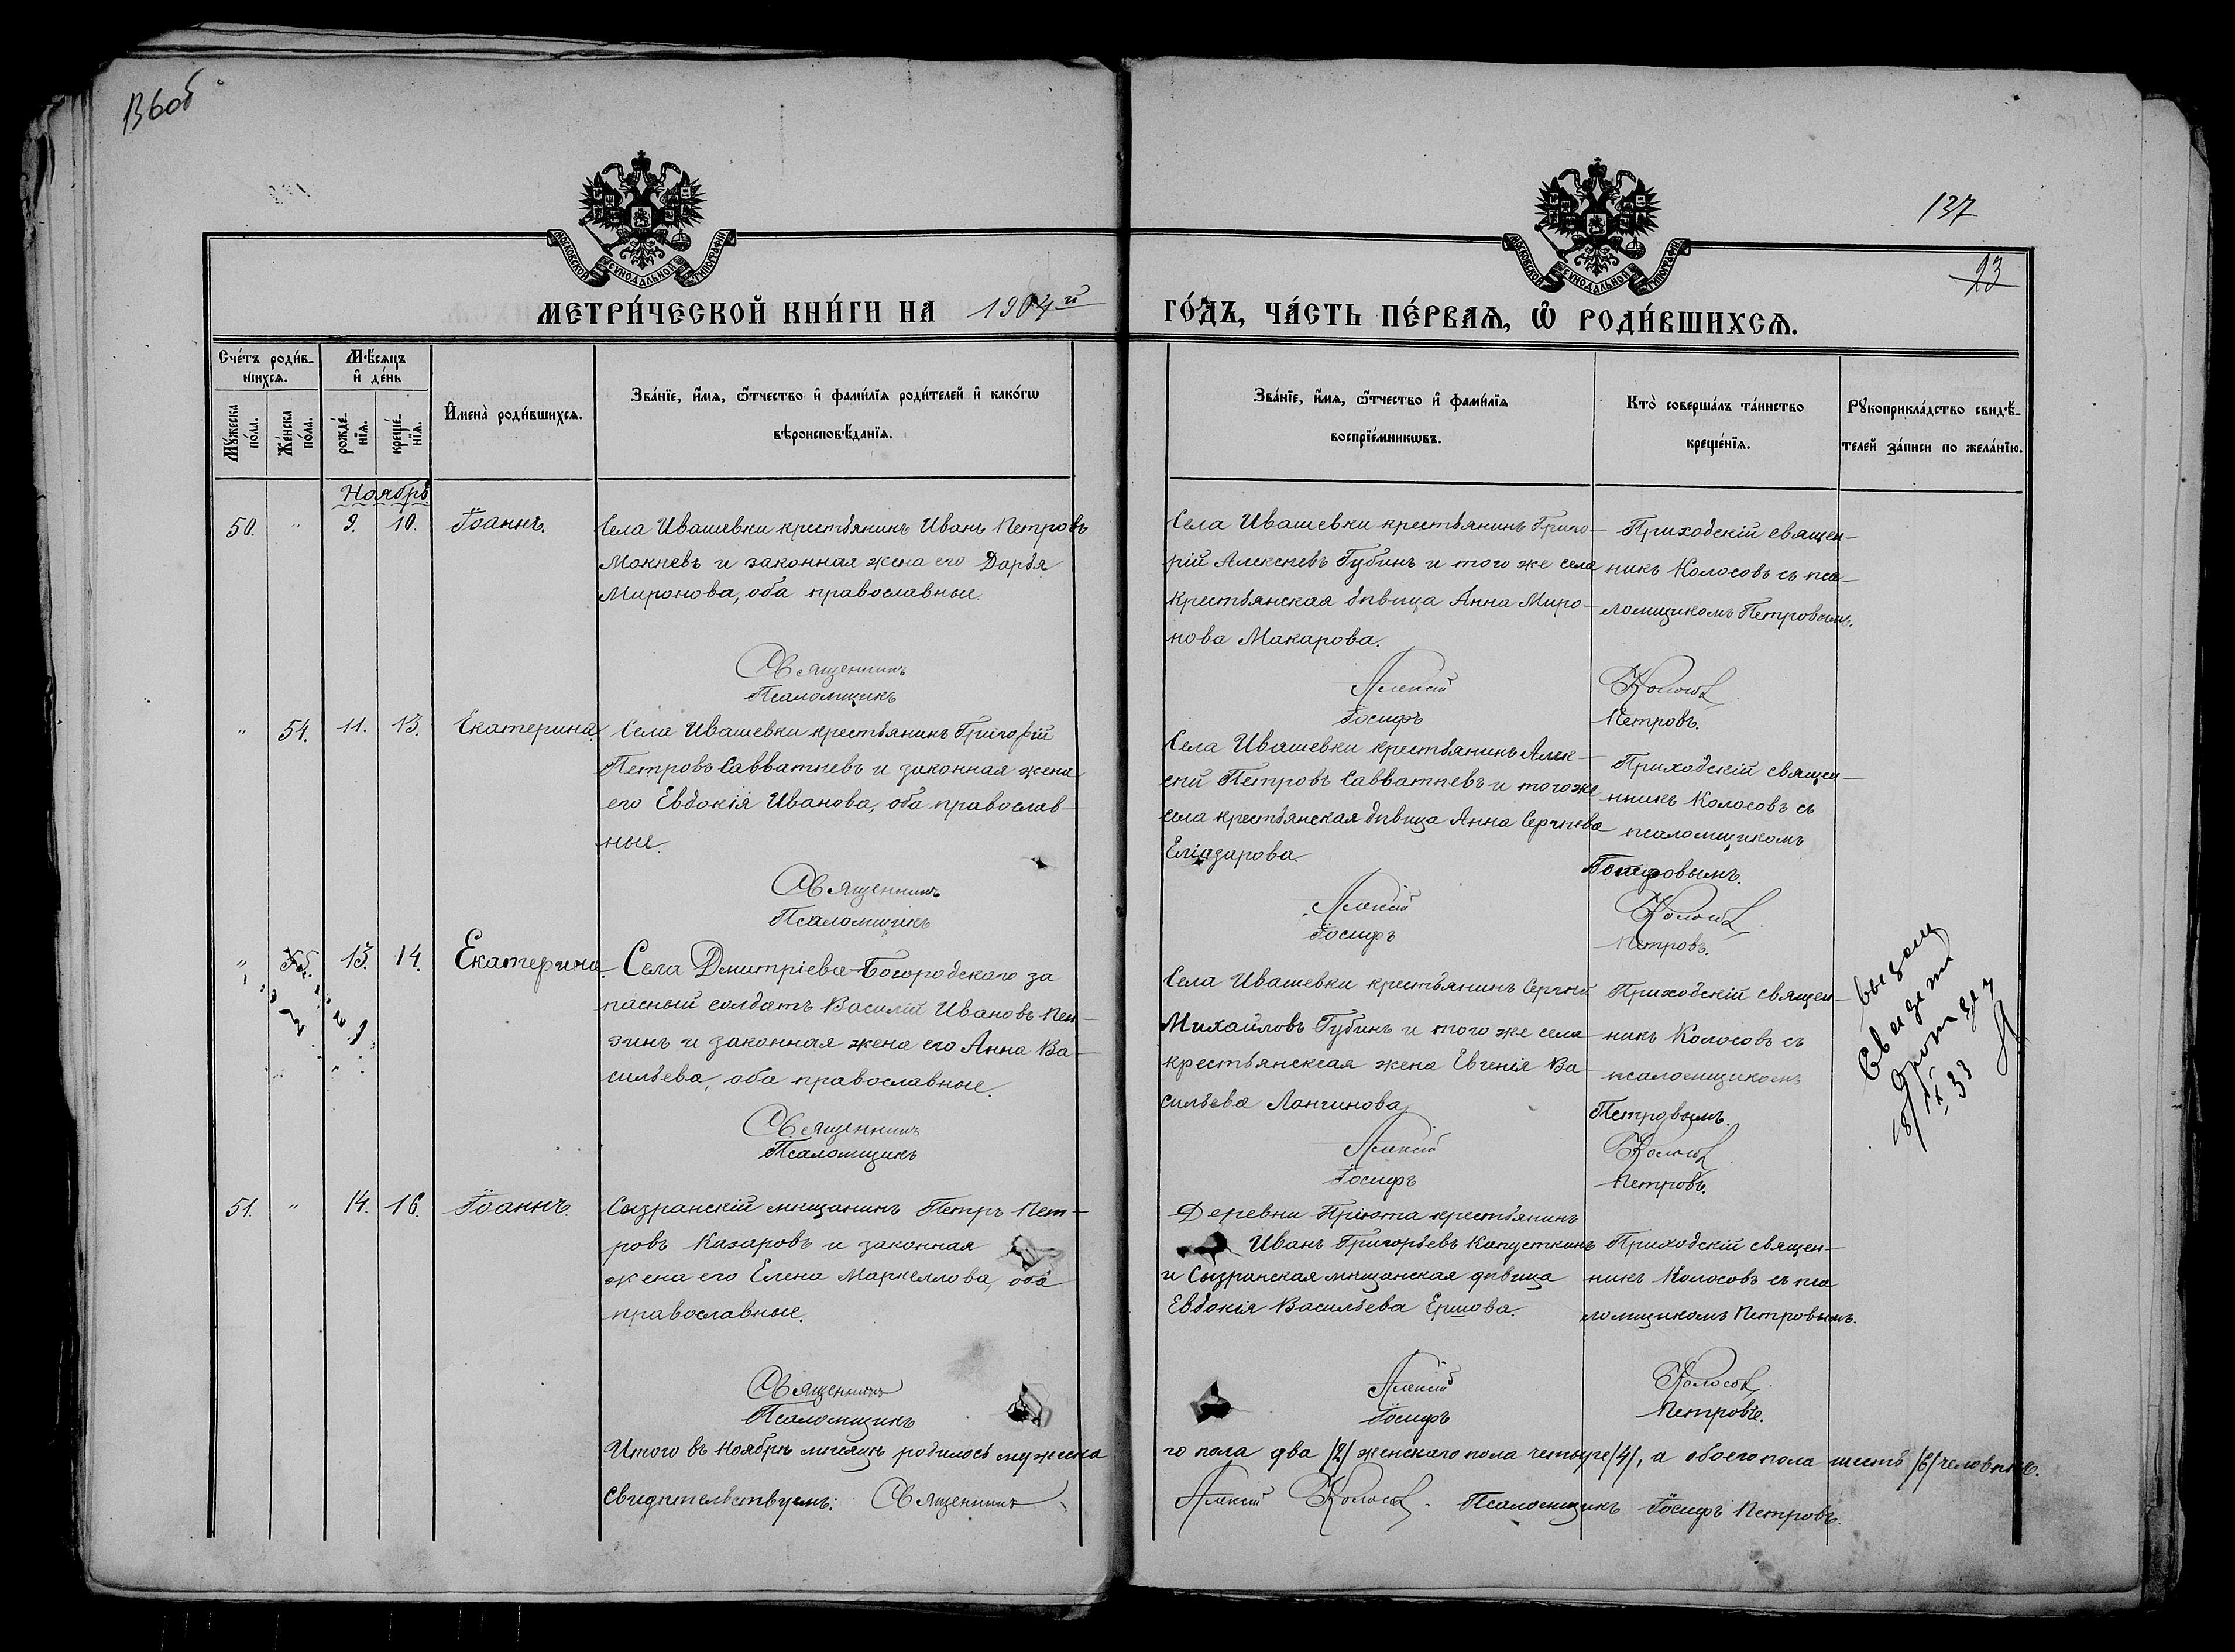 136об
137
23
МОСКОВСКОЙ СУНОДАЛЬНОЙ ТИПОГРАФІИ
МОСКОВСКОЙ СУНОДАЛЬНОЙ ТИПОГРАФІИ
МЕТРИ́ЧЕСКОЙ КНИ́ГИ НА 1904й
ГО́ДЪ, ЧА́СТЬ ПЕ́РВАѦ, Ѡ҆ РОДИ́ВШИХСѦ.
Сче́тъ роди́в-
шихсѧ.
Мꙋ́жеска по́ла.
Же́нска по́ла.
Мѣ́сяцъ
и҆ де́нь
рожде́-
нїѧ.
креще́-
нїѧ.
И҆мена̀ роди́вшихсѧ.
Зва́нїе, и҆́мѧ, ѻ҆́тчество и҆ фами́лїѧ роди́телей и҆ како́гѡ
вѣроисповѣ́данїѧ.
Зва́нїе, и҆́мѧ, ѻ҆́тчество и҆ фами́лїѧ
воспрїе́мникѡвъ.
Кто̀ соверша́лъ та́инство
креще́нїѧ.
Рꙋкоприкла́дство свидѣ́-
телей за́писи по жела́нїю.
Ноябрь
50. " 9. 10. Іоаннъ.
Села Ивашевки крестьянинъ Иванъ Петровъ
Мокѣевъ и законная жена его Дарья
Миронова, оба православные.
Села Ивашевки крестьянинъ Григо-
рій Алексѣевъ Губинъ и того же села
крестьянская дѣвица Анна Миро-
нова Макарова.
Приходскій священ-
никъ Колосовъ съ пса-
ломщикомъ Петровымъ.
Священникъ Алексій Колосовъ
Псаломщикъ Іосифъ Петровъ.
" 54. 11. 13. Екатерина.
Села Ивашевки крестьянинъ Григорій
Петровъ Савватѣевъ и законная жена
его Евдокія Иванова, оба православ-
ные.
Села Ивашевки крестьянинъ Алек-
сѣй Петровъ Савватѣевъ и того же
села крестьянская дѣвица Анна Сергѣева
Еліазарова.
Приходскій священ-
никъ Колосовъ съ
псаломщикомъ
Петровымъ.
Священникъ Алексій Колосовъ
Псаломщикъ Іосифъ Петровъ.
" 13. 14. Екатерина
Села Дмитріева-Богородскаго за
пасный солдатъ Василій Ивановъ Пен-
зинъ и законная жена его Анна Ва-
сильева, оба православные.
Села Ивашевки крестьянинъ Сергѣй
Михайловъ Губинъ и того же села
крестьянская жена Евгенія Ва-
сильева Ланчинова
Приходскій священ-
никъ Колосовъ съ
псаломщикомъ
Петровымъ.
IX 33
Священникъ Алексій Колосовъ
Псаломщикъ Іосифъ Петровъ.
51. " 14. 16. Іоаннъ.
Сызранскій мѣщанинъ Петръ Пет-
ровъ Казаровъ и законная
жена его Елена Маркеллова, оба
православные.
Деревни Пріюта крестьянинъ
Иванъ Григорьевъ Капусткинъ
и Сызранская мѣщанская дѣвица
Евдокія Васильева Ершова.
Приходскій священ-
никъ Колосовъ съ пса
ломщикомъ Петровымъ.
Священникъ Алексій Колосовъ
Псаломщикъ Іосифъ Петровъ.
Итого въ Ноябрѣ мѣсяцѣ родилось мужеска
го пола два /2/ женскаго пола четыре /4/, а обоего пола шесть /6/ человѣкъ.
Свидѣтельствуемъ: Священникъ Алексій Колосовъ. Псаломщикъ Іосифъ Петровъ.